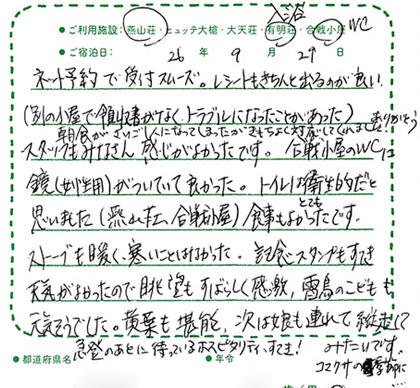 入浴
● ご利用施設: 燕山荘・ヒュッテ大槍・大天荘・有明荘・合戦小屋 WC
● ご宿泊日: 26年 9月 29日
ネット予約で受付スムーズ。レシートもきちんと出るのが良い
(別の小屋で領収書がなくトラブルになったことがあった)
朝食が さいごになってしまったが きもちよく対応してくれました! ありがとう
スタッフもみなさん 感じがよかったです。合戦小屋のWCに
鏡(女性用)がついていて良かった。トイレは衛生的だと
思いました(燕山荘、合戦小屋) 食事もとてもよかったです。
ストーブも暖く、寒いことはなかった。記念スタンプもすてき
天気がよかったので眺望もすばらしく感激、雷鳥のこども も
元気そうでした。黄葉も堪能、次は娘も連れて縦走して
みたいです。
急登のあとに待っているホスピタリティすてき!
コマクサの季節に
● 都道府県名 ● 年令